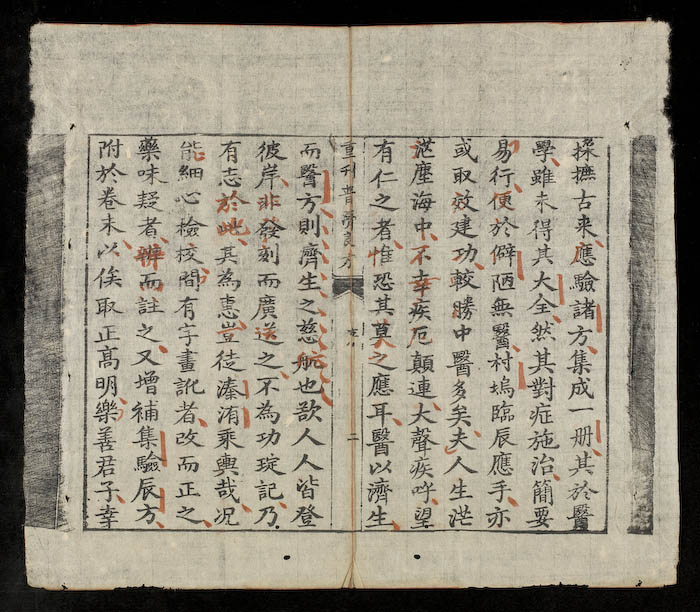 採摭古来應驗諸方集成一册其於醫
學雖未得其大全然其對症施治簡要
易行便於僻陋無醫村塢臨辰應手亦
或取效建功較勝中醫多矣夫人生茫
茫塵海中不幸疾厄顛連大聲疾呼望
有仁之者惟恐其莫之應耳醫以濟生
重刊普濟良方
二
而醫方則濟生之慈航也欲人人皆登
彼岸非發刻而廣送之不為功琔記乃
有志於此其為惠豈徒溱洧乘輿哉况
能細心檢校間有字畫訛者改而正之
藥味疑者辨而註之又增補集驗辰方
附於卷末以俟取正高明樂善君子幸